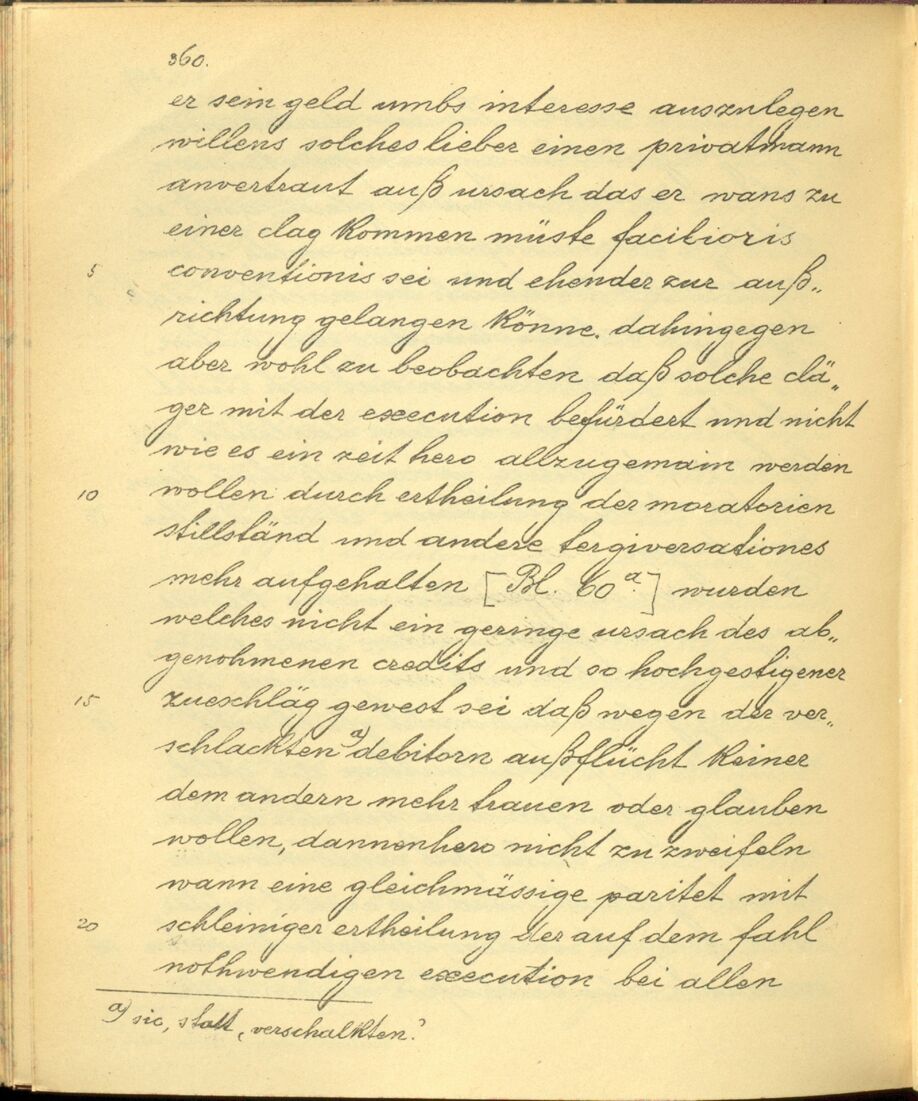 360.
er sein geld umbs interesse auszulegen
willens solches lieber einen privatmann
anvertraut auß ursach das er wans zu
einer clag kommen müste facilioris
5 conventionis sei und ehender zur auß„
richtung gelangen könne. dahingegen
aber wohl zu beobachten daß solche clä„
ger mit der execution befürdert und nicht
wie es ein zeit hero allzugemain werden
10 wollen durch ertheilung der moratorien
stillständ und andere tergiversationes
mehr aufgehalten [Bl. 60a.] wurden
welches nicht ein geringe ursach des ab„
genohmenen credits und so hochgestigener
15 zueschläg gewest sei daß wegen der ver„
schlackten a) debitorn außflücht keiner
dem andern mehr trauen oder glauben
wollen, dannenhero nicht zu zweifeln
wann eine gleichmässige paritet mit
20 schleiniger ertheilung der auf dem fahl
nothwendigen execution bei allen
a) sic, statt „verschalkten?